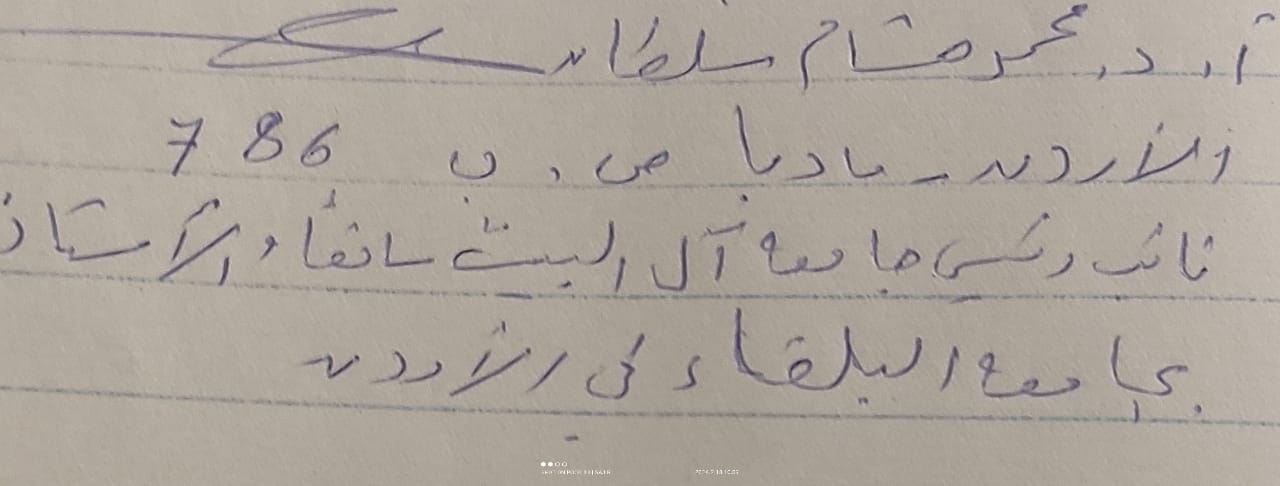 أ. د. محمد هشام سلطان
الأردن - مادبا ص. ب 786
نائب رئيس جامعة آل البيت سابقاً والأستاذ
بجامعة البلقاء في الأردن